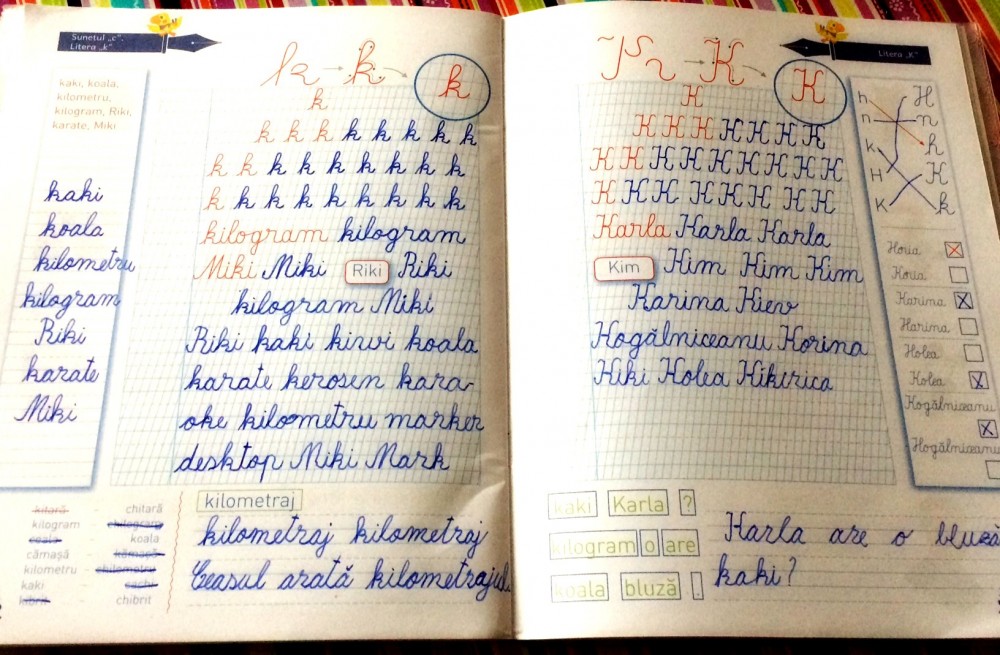 Sunetul „c".
Litera „k"
k k
k
k
kaki, koala,
kilometru,
kilogram, Riki,
karate, Miki
kaki
koala
kilometru
kilogram
Riki
karate
Miki
k k k k k k k k
k k k k k k k k k
k k k k k k k k k
kilogram kilogram
Miki Miki Riki Riki
kilogram Miki
Riki kaki kiwi koala
karate kerosen kara-
oke kilometru marker
desktop Miki Mark
kitară - chitară
kilogram - chilogram
coala - koala
cămașă - kămașă
kilometru - chilometru
kaki - cachi
kibrit - chibrit
kilometraj
kilometraj kilometraj
Ceasul arată kilometrajul
Litera „K"
K
K
K
K K K K K K K
K K K K K K K K K
K K K K K K K K
Karla Karla Karla
Kim Kim Kim Kim
Karina Kiev
Kogălniceanu Korina
Kiki Kolea Kikirica
h H
n n
k h
H K
K k
Horia
Koria
Karina
Harina
Holea
Kolea
Kogălniceanu
Hogălniceanu
kaki Karla ?
kilogram o are
koala bluză .
Karla are o bluză
kaki?